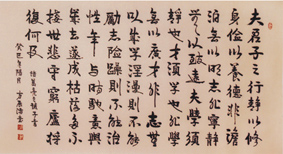 夫君子之行靜以修
身儉以養德非澹
泊無以明志非寧靜
無以致遠夫學須
靜也才須學也非學
無以廣才非志無
以成學淫漫則不能
勵志險躁則不能治
性年與時馳意與
歲去遂成枯落多不
接世悲守窮廬將
復何及
諸葛亮誡子書
癸巳年